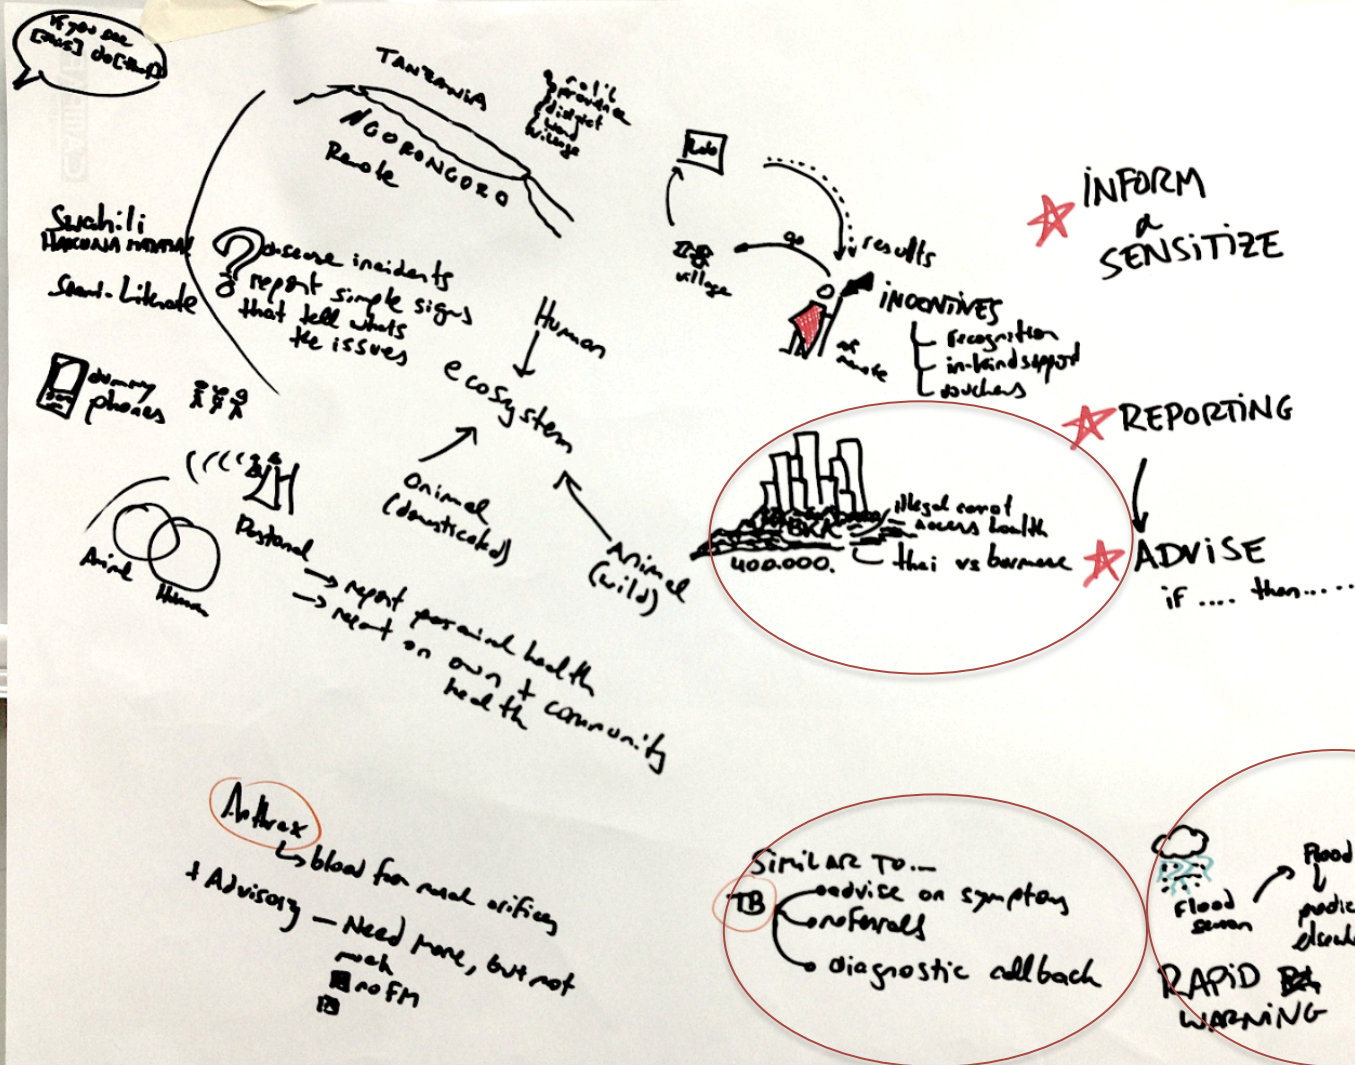 if you see
[this] do [that]
TANZANIA
province
district
ward
village
NGORONGORO
Remote
Swahili
HAKUNA MATATA!
Semi-Literate
? disease incidents
report simple signs
that tell whats
the issues
dummy
phones
Human
ecosystem
animal
(domesticated)
ANiMal
(wild)
Animal
Human
Pastoral
→ report personal health
→ report on own + community
health
go
village
results
iNCENTiVES
recognition
in-kind support
vouchers
remote
iNFORM
&
SENSiTiZE
REPORTiNG
ADViSE
if .... then......
BKK
400.000.
illegal cannot
access health
thai vs burmese
Anthrax
blood from
orifices
+ Advisory — Need more, but not
much
no FM
SiMiLAR TO...
TB
advise on symptoms
referrals
diagnostic callback
Flood
season
Flood
RAPiD
WARNiNG